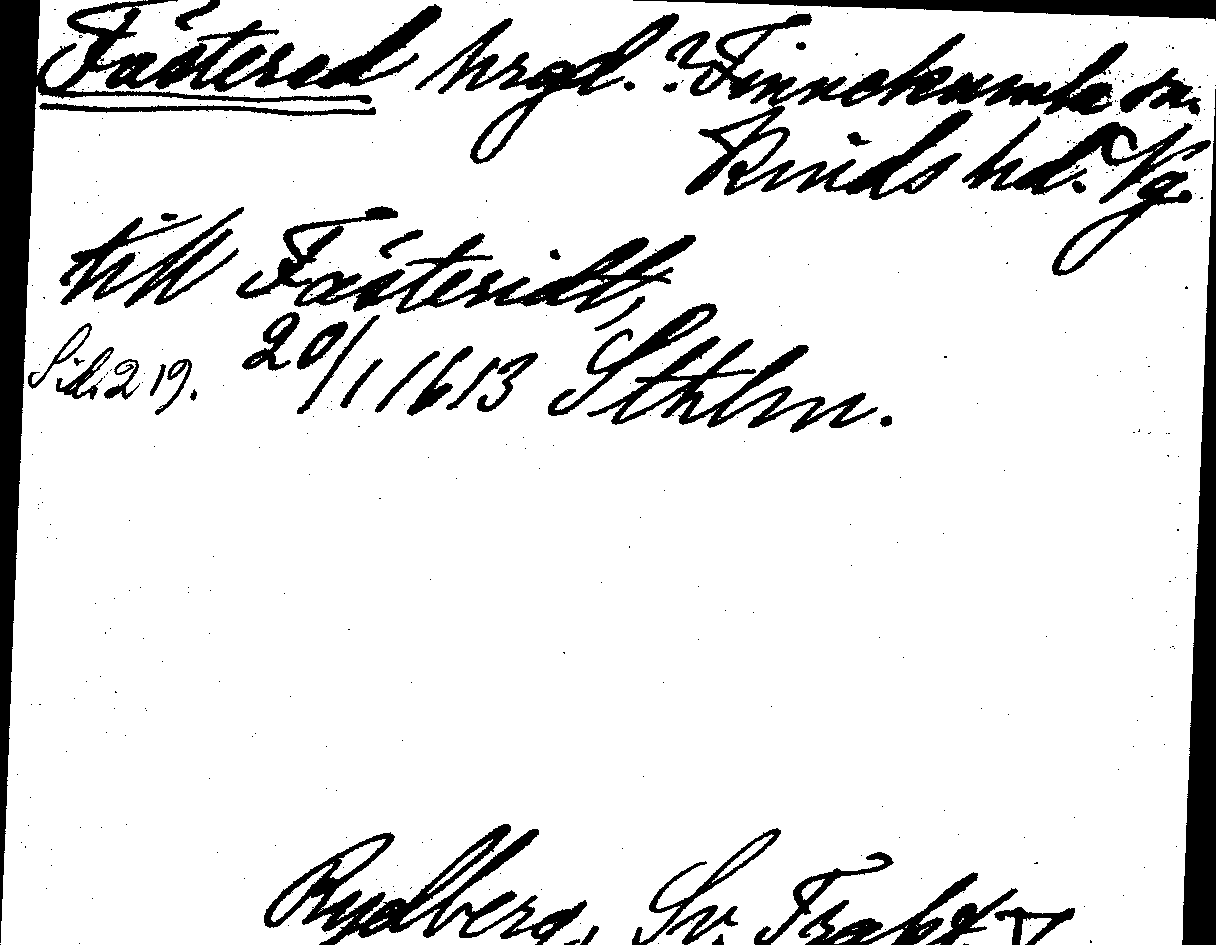 Fästered hrgd. ? Finnekumla sn.
Kinds hd. Vg.
till Fästeridt,
Sid. 219. 20/1 1613 Sthlm.
Rydberg, Sv. Trakt. V